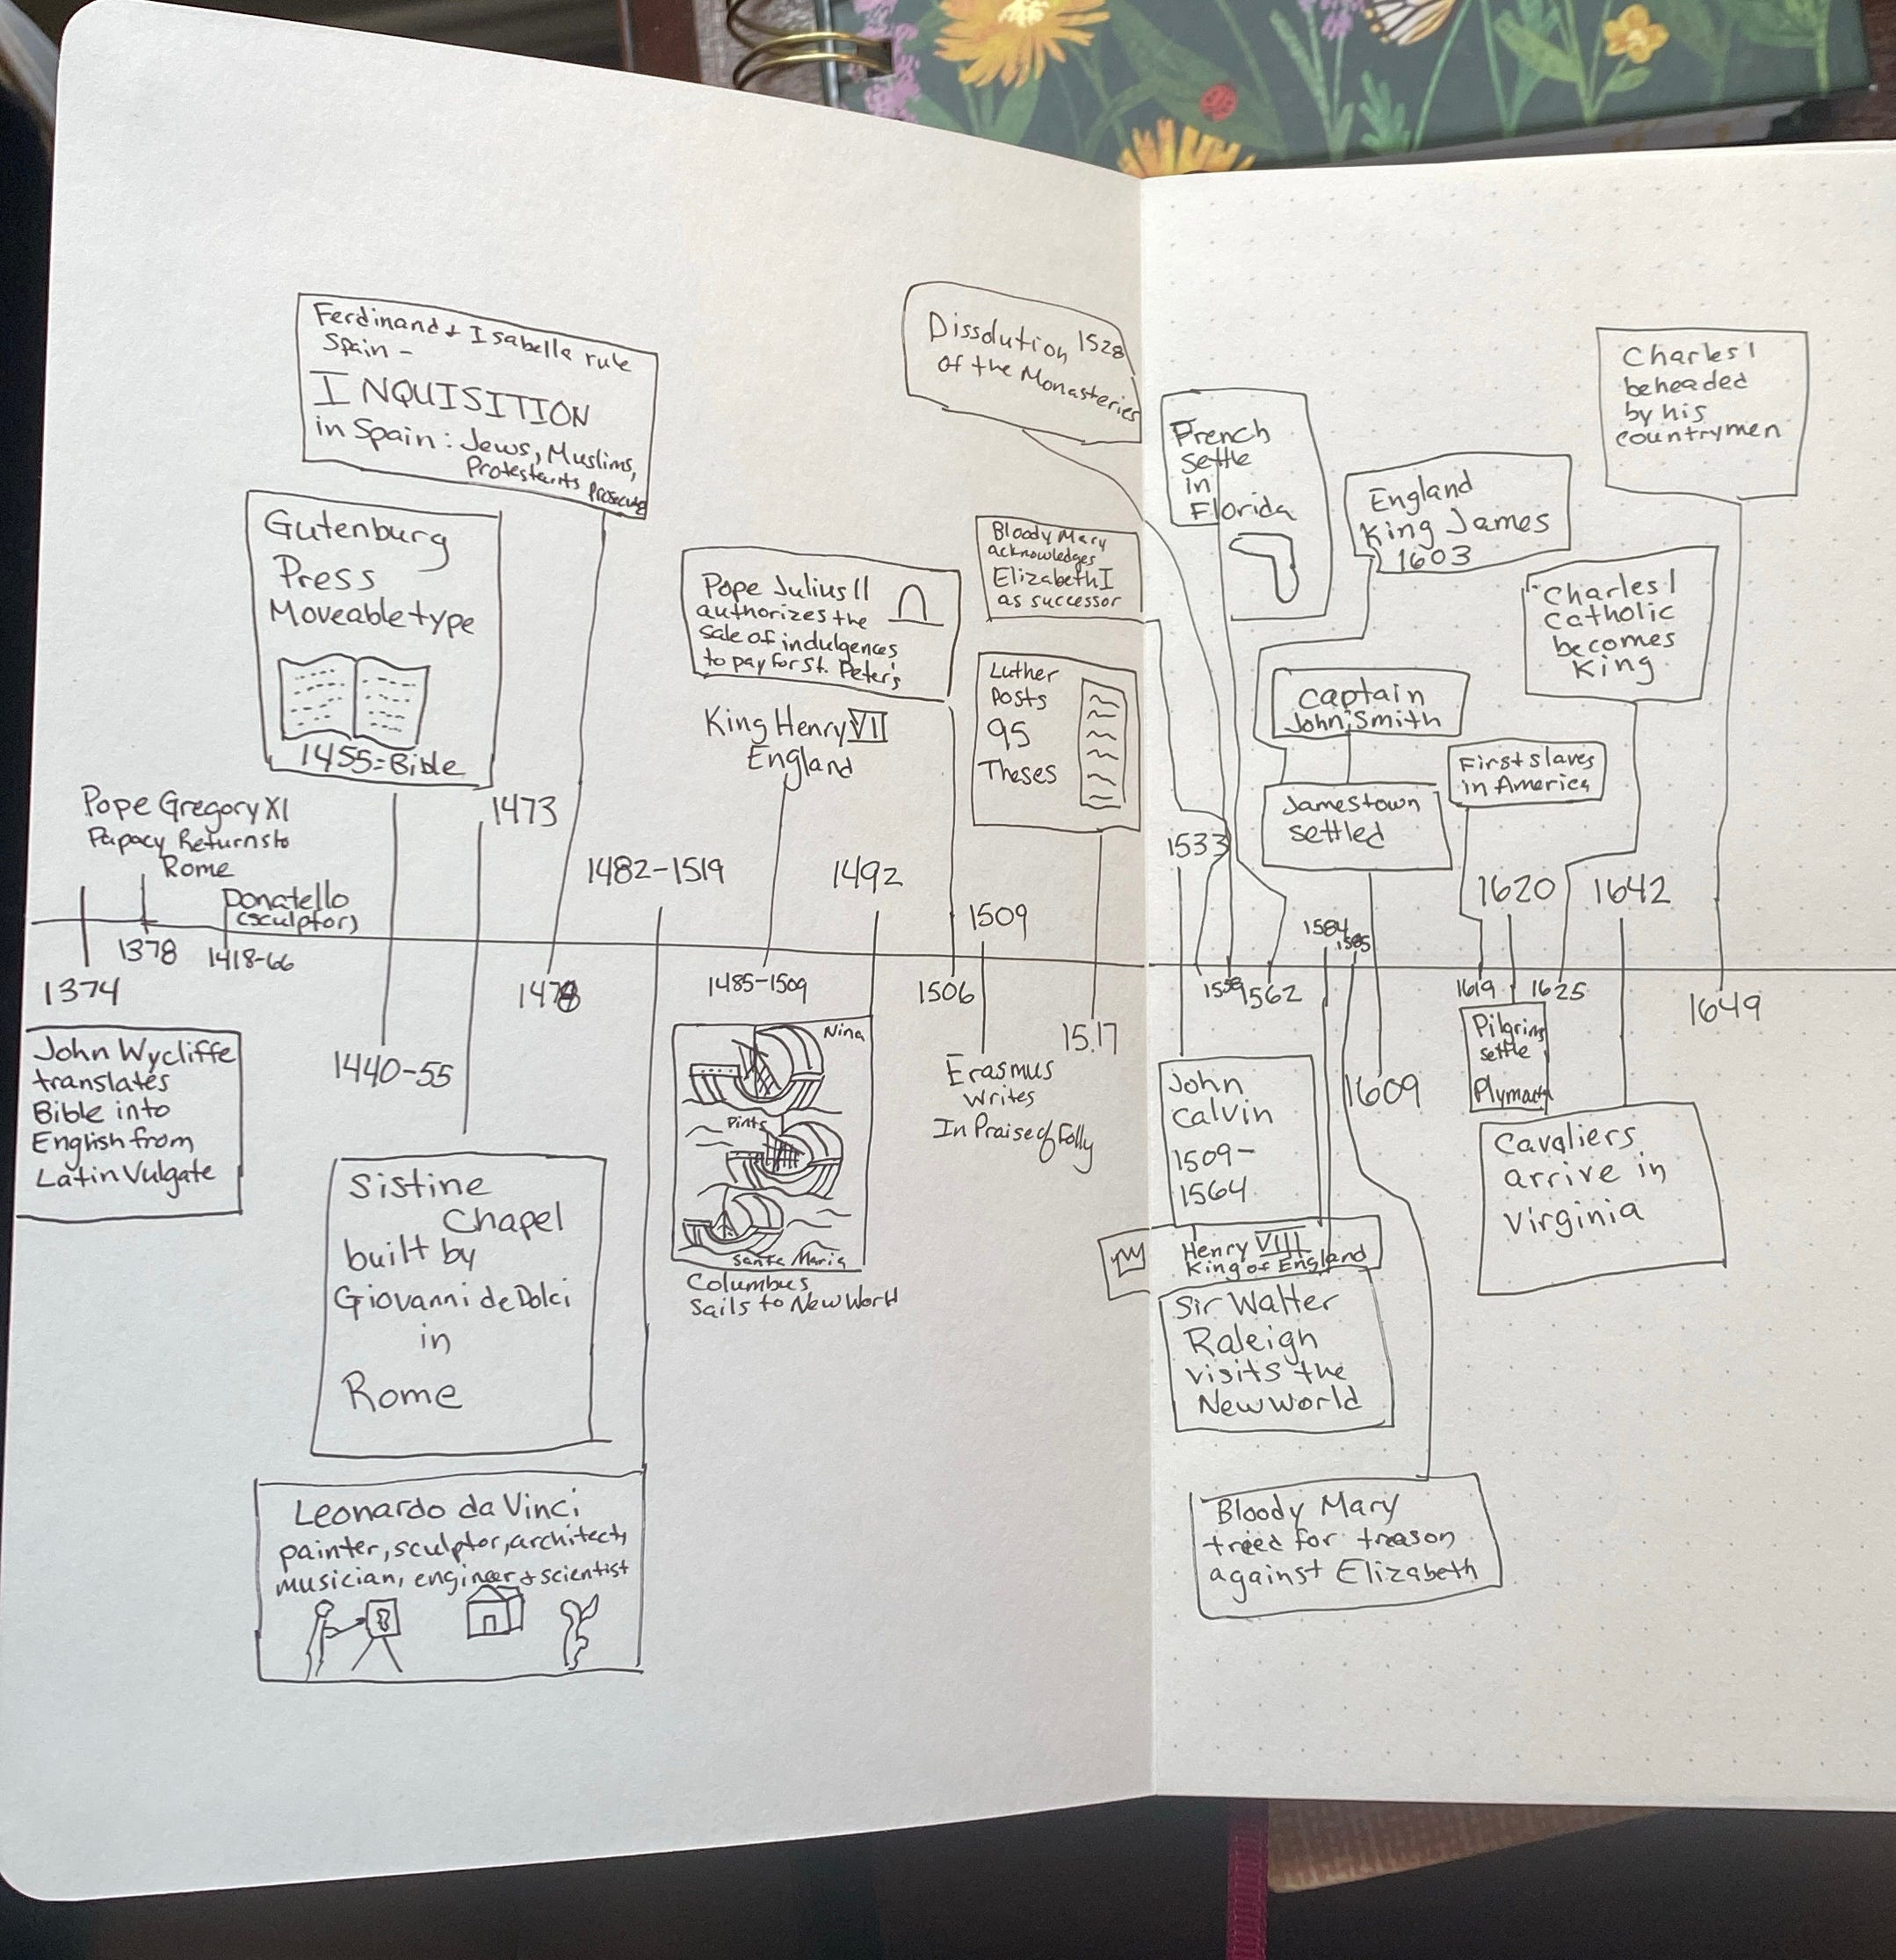 Ferdinand & Isabella rule
Spain -
INQUISITION
in Spain: Jews, Muslims,
Protestants Prosecuted
Gutenburg
Press
Moveable type
1455=Bible
Pope Gregory XI
Papacy Returns to
Rome
Donatello
(sculptor)
1473
1482-1519
1374
1378
1418-66
1440-55
John Wycliffe
translates
Bible into
English from
Latin Vulgate
Sistine
Chapel
built by
Giovanni de Dolci
in
Rome
Leonardo da Vinci
painter, sculptor, architect,
musician, engineer & scientist
Dissolution 1528
of the Monasteries
Pope Julius II
authorizes the
sale of indulgences
to pay for St. Peter's
King Henry VII
England
Bloody Mary
acknowledges
Elizabeth I
as successor
Luther
Posts
95
Theses
1492
1509
1485-1509
1506
1517
Nina
Pinta
Santa Maria
Columbus
Sails to New World
Erasmus
Writes
In Praise of Folly
French
settle
in
Florida
England
King James
1603
Charles I
beheaded
by his
countrymen
Charles I
Catholic
becomes
King
Captain
John Smith
Jamestown
settled
First slaves
in America
1533
1584
1585
1620
1642
1559
1562
1609
1619
1625
1649
John
Calvin
1509-
1564
Henry VIII
King of England
Sir Walter
Raleigh
visits the
New World
Bloody Mary
tried for treason
against Elizabeth
Pilgrims
settle
Cavaliers
arrive in
Virginia